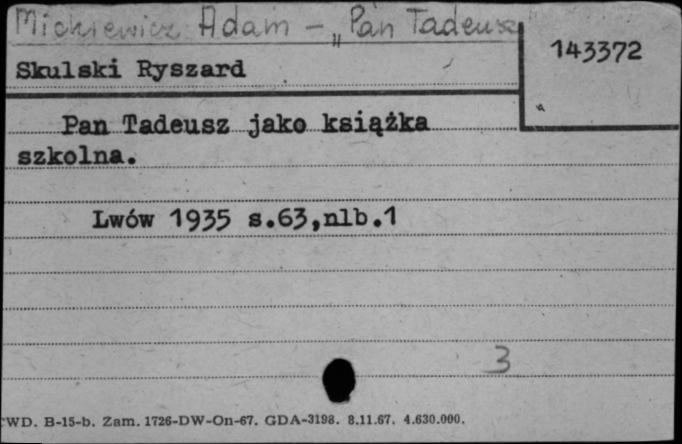 Mickiewicz Adam - „Pan Tadeusz
143372
Skulski Ryszard
Pan Tadeusz jako książka
szkolna.
Lwów 1935 s.63,nlb.1
3
WD. B-15-b. Zam. 1726-DW-On-67. GDA-3198. 8.11.67. 4.630.000.